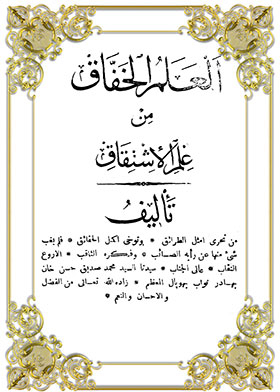 العلم الخفاق
من
علم الاشتقاق
تأليف
من تحرى امثل الطرائق * وتوخى اكمل الحقائق * فلم يغب
شئ منها عن رأيه الصائب * وفكره الثاقب * الاروع
النقاب * عالى الجناب * سيدنا السيد محمد صديق حسن خان
بهادر نواب بهوپال المعظم * زاده الله تعالى من الفضل
والاحسان والنعم *